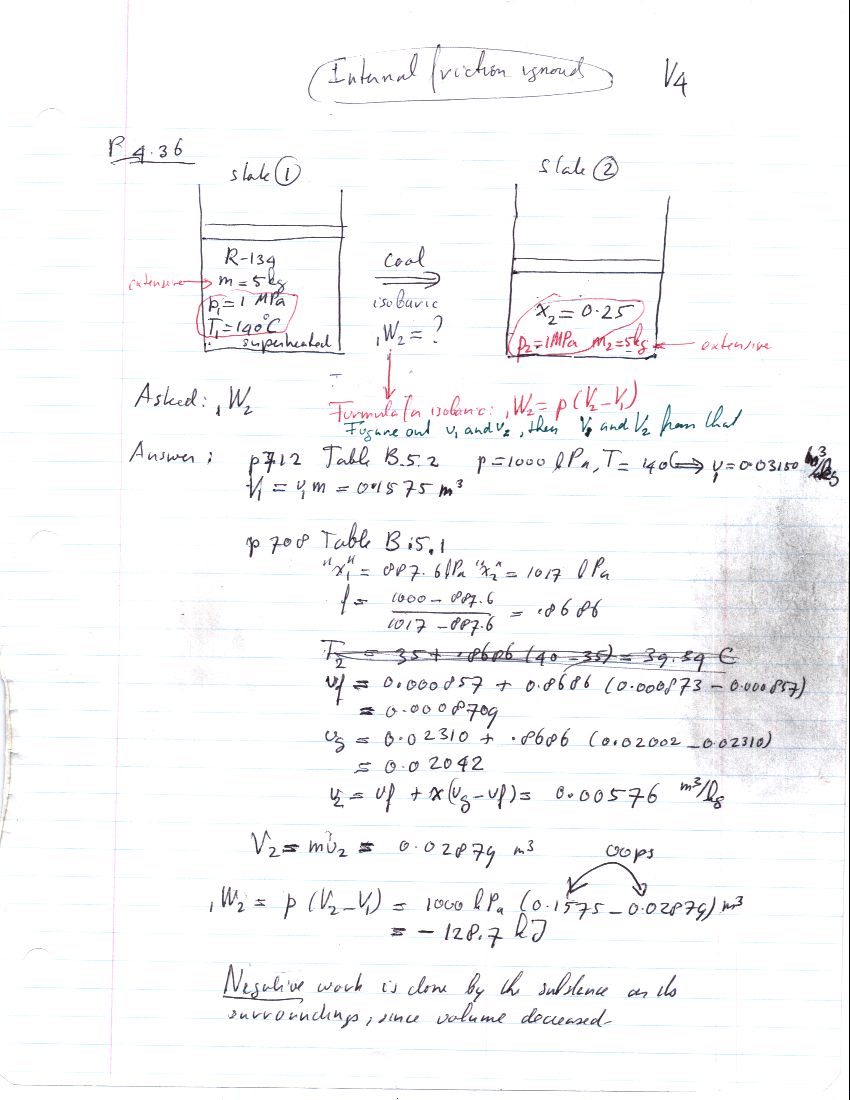 Internal friction ignored
V4
P 4.36
state ①
state ②
R-134
extensive → m = 5 kg
p₁ = 1 MPa
T₁ = 140°C
superheated
cool
⇒
isobaric
₁W₂ = ?
x₂ = 0.25
p₂ = 1 MPa m₂ = 5 kg ← extensive
Asked: ₁W₂
Formula for isobaric: ₁W₂ = p (V₂ - V₁)
Figure out v₁ and v₂, then V₁ and V₂ from that
Answer: p712 Table B.5.2 p = 1000 kPa, T = 140C ⇒ v₁ = 0.03150 m³/kg
V₁ = v₁ m = 0.1575 m³
p 708 Table B.5.1
"x₁" = 887.6 kPa "x₂" = 1017 kPa
f = (1000 - 887.6) / (1017 - 887.6) = .8686
T₂ = 35 + .8686 (40 - 35) = 39.34 C
vf = 0.000857 + 0.8686 (0.000873 - 0.000857)
= 0.0008709
vg = 0.02310 + .8686 (0.02002 - 0.02310)
= 0.02042
v₂ = vf + x(vg - vf) = 0.00576 m³/kg
V₂ = mv₂ = 0.02879 m³
oops
₁W₂ = p (V₂ - V₁) = 1000 kPa (0.1575 - 0.02879) m³
= - 128.7 kJ
Negative work is done by the substance on its
surroundings, since volume decreased.